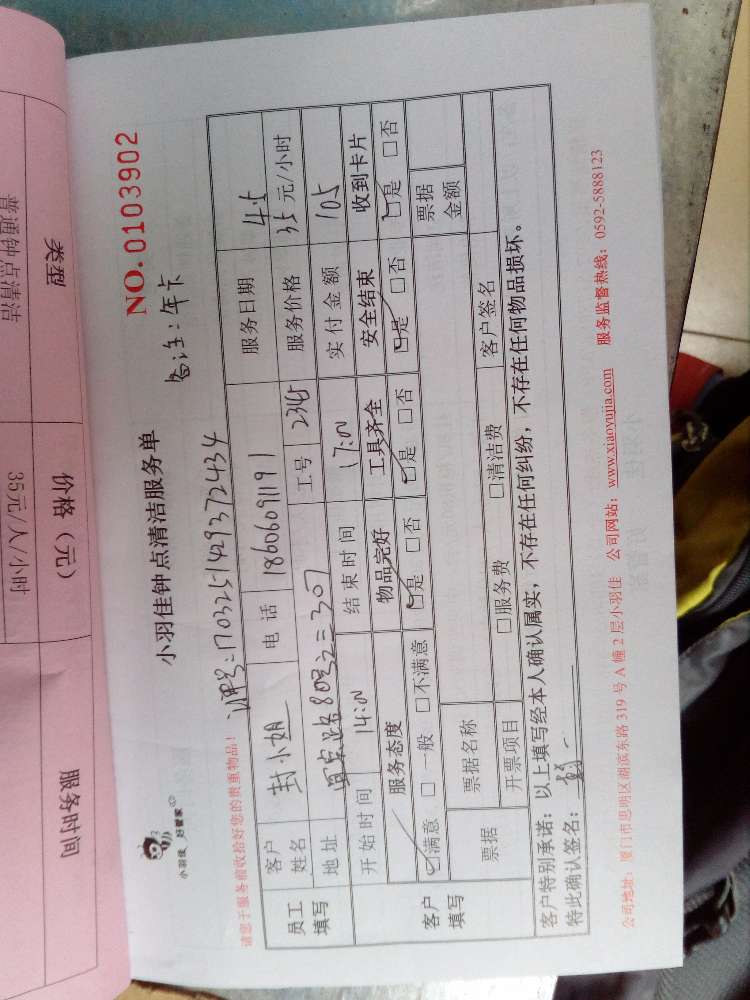 类型
价格（元）
服务时间
普通钟点清洁
35元/人/小时
小羽佳 好管家
小羽佳钟点清洁服务单
备注：年卡
NO.0103902
请您于服务前收拾好您的贵重物品！
订单号：1703251429372434
员工填写
客户姓名 封小姐 电话 18606091191 服务日期 4.5
工号 2345 服务价格 35元/小时
地址 80号之二307 实付金额 105
开始时间 14:00 结束时间 17:00
客户填写
服务态度 物品完好 工具齐全 安全结束 收到卡片
☑满意 □一般 □不满意 ☑是 □否 ☑是 □否 ☑是 □否 ☑是 □否
票据 票据名称 票据金额
开票项目 □服务费 □清洁费 客户签名
客户特别承诺：以上填写经本人确认属实，不存在任何纠纷，不存在任何物品损坏。
特此确认签名：
公司地址：厦门市思明区湖滨东路319号A幢2层小羽佳 公司网站：www.xiaoyujia.com 服务监督热线：0592-5888123